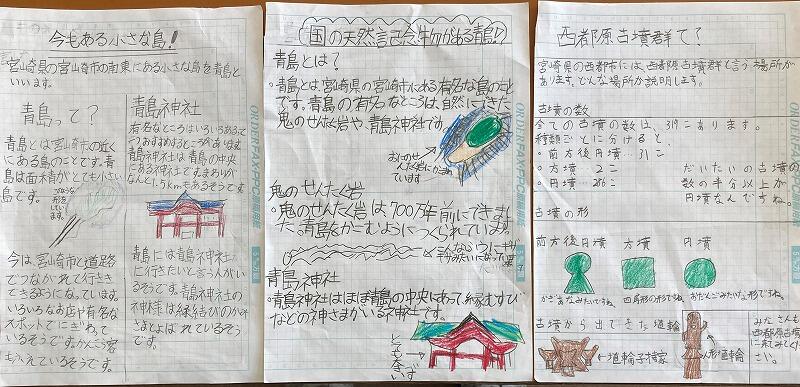 今もある小さな島!
宮崎県の宮崎市の南東にある小さな島を青島と
いいます。
青島って?
青島とは宮崎市の近く
にある島のことです。青
島は面積がとても小さい
島です。
このような
形をして
います。
今は宮崎市と道路
でつながれて行きき
できるようになっています。
いろいろなお店や有名な
スポットでにぎわっ
ているそうです。かんこう客
もふえているそうです。
青島神社
有名なところはいろいろあるって
青島神社は青島の中央
にある神社です。まわりが
なんと1.5kmもあるそうです
青島には青島神社
に行きたいと言う人がい
るそうです。青島神社の
神様は縁結びのかみ
さまとよばれているそう
です。
国の天然記念物がある青島!
青島とは?
・青島は宮崎県の宮崎市にある有名な島のこと
です。青島の有名なところは、自然にできた
鬼のせんたく岩や、青島神社です。
おにのせ
んたく岩にかこまれ
ています
鬼のせんたく岩
・鬼のせんたく岩は700万年前にできまし
た。青島をかこむようにつくられています。
青島神社
・青島神社はほぼ青島の中央にあって縁むすび
などの神さまがいる神社です。
ORDER FAX/PPC原稿用紙
西都原古墳群て?
宮崎県の西都市には、西都原古墳群と言う場所が
あります。どんな場所か説明します。
古墳の数
全ての古墳の数は、319こあります。
種類ごとに分けると、
・前方後円墳…31こ
・方墳…2こ
・円墳…286こ
だいたいの古墳の
数の半分以上が
円墳なんですね。
古墳の形
前方後円墳 方墳 円墳
かぎあなみたいですね。 四角形の形ですね。 おだんごみたいな形ですね。
古墳から出てきた埴輪
←埴輪子持家
人形埴輪
みなさんも
西都原古墳
に来てみてく